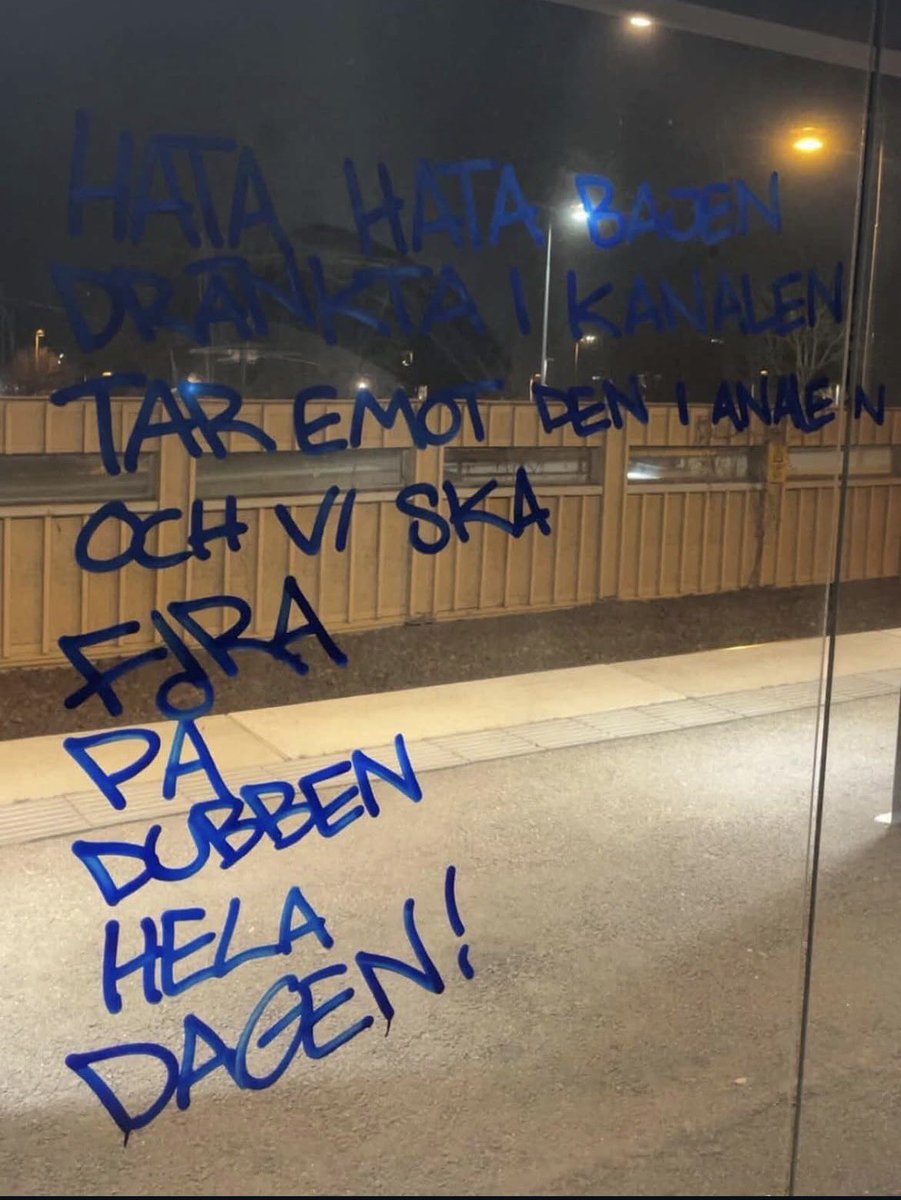 HATA HATA BAJEN
DRÄNKTA I KANALEN
TAR EMOT DEN I ANALEN
OCH VI SKA
FIRA
PÅ
DUBBEN
HELA
DAGEN!